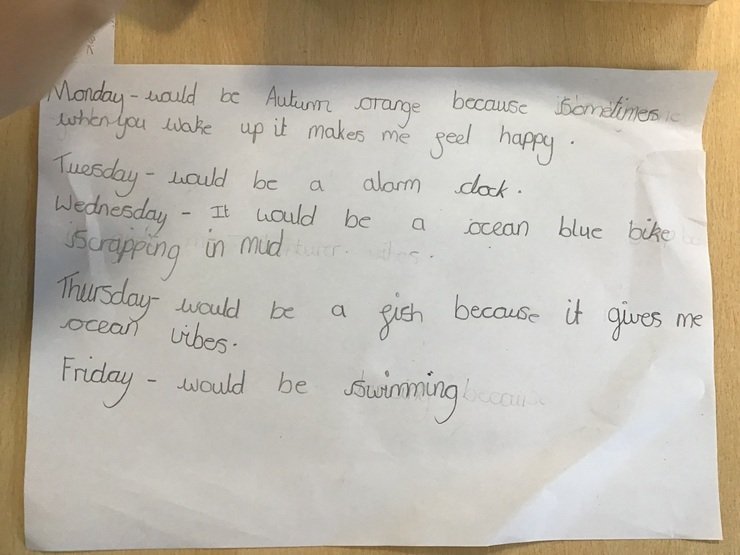 Monday - would be Autumn orange because sometimes
when you wake up it makes me feel happy.
Tuesday - would be a alarm clock.
Wednesday - It would be a ocean blue bike
scrapping in mud
Thursday - would be a fish because it gives me
ocean vibes.
Friday - would be swimming because